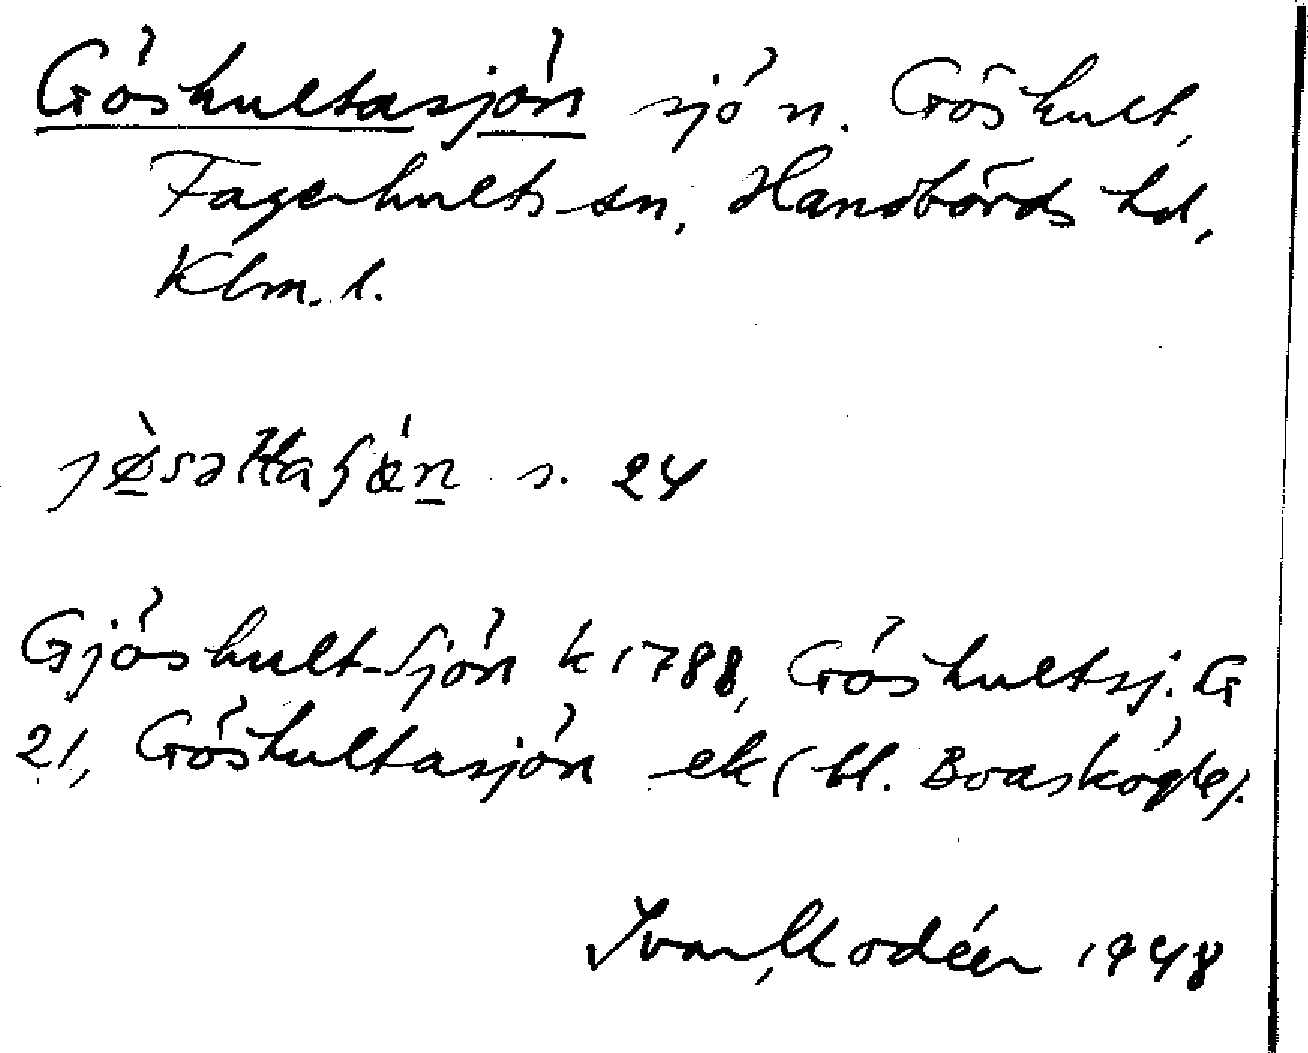 Göskultasjön sjö n. Göskult,
Fagerhults sn, Handbörds hd,
Klm. l.
s. 24
Gjöshult-Sjön k 1788, Göshultsj. G
21, Göskultasjön ek (bl. Boaskögle).
Ivar Modéer 1948